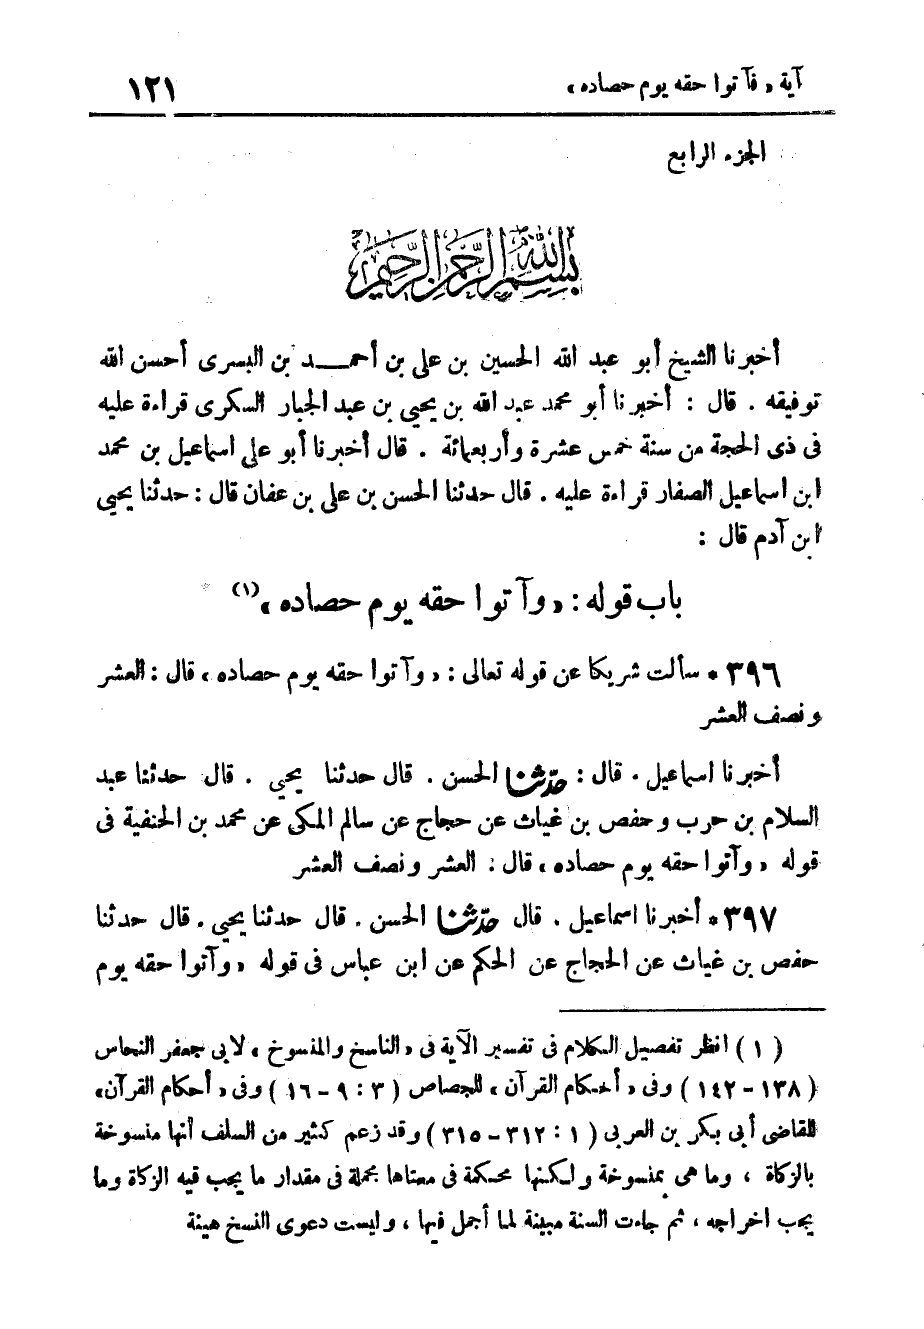 آية «فآتوا حقه يوم حصاده» ١٢١
الجزء الرابع
بسم الله الرحمن الرحيم
أخبرنا الشيخ أبو عبد الله الحسين بن على بن أحمـــد بن البسرى أحسن الله
توفيقه . قال : أخبرنا أبو محمد عبد الله بن يحيى بن عبد الجبار السكرى قراءة عليه
فى ذى الحجة من سنة خمس عشرة وأربعمائة . قال أخبرنا أبو على اسماعيل بن محمد
ابن اسماعيل الصفار قراءة عليه . قال حدثنا الحسن بن على بن عفان قال : حدثنا يحيى
ابن آدم قال :
باب قوله : «وآتوا حقه يوم حصاده»(١)
٣٩٦ * سألت شريكا عن قوله تعالى : «وآتوا حقه يوم حصاده» قال : العشر
ونصف العشر
أخبرنا اسماعيل . قال : حدّثنا الحسن . قال حدثنا يحيى . قال حدثنا عبد
السلام بن حرب وحفص بن غياث عن حجاج عن سالم المكى عن محمد بن الحنفية فى
قوله «وآتوا حقه يوم حصاده» قال : العشر ونصف العشر
٣٩٧ * أخبرنا اسماعيل . قال حدّثنا الحسن . قال حدثنا يحيى . قال حدثنا
حفص بن غياث عن الحجاج عن الحكم عن ابن عباس فى قوله «وآتوا حقه يوم
(١) انظر تفصيل الكلام فى تفسير الآية فى «الناسخ والمنسوخ» لابى جعفر النحاس
(١٣٨ – ١٤٢) وفى «أحكام القرآن» للجصاص (٣ : ٩ – ١٦) وفى «أحكام القرآن»
للقاضى أبى بكر بن العربى (١ : ٣١٢ – ٣١٥) وقد زعم كثير من السلف أنها منسوخة
بالزكاة ، وما هى بمنسوخة ولكنها محكمة فى معناها مجملة فى مقدار ما يجب فيه الزكاة وما
يجب اخراجه ، ثم جاءت السنة مبينة لما أجمل فيها ، وليست دعوى النسخ هينة